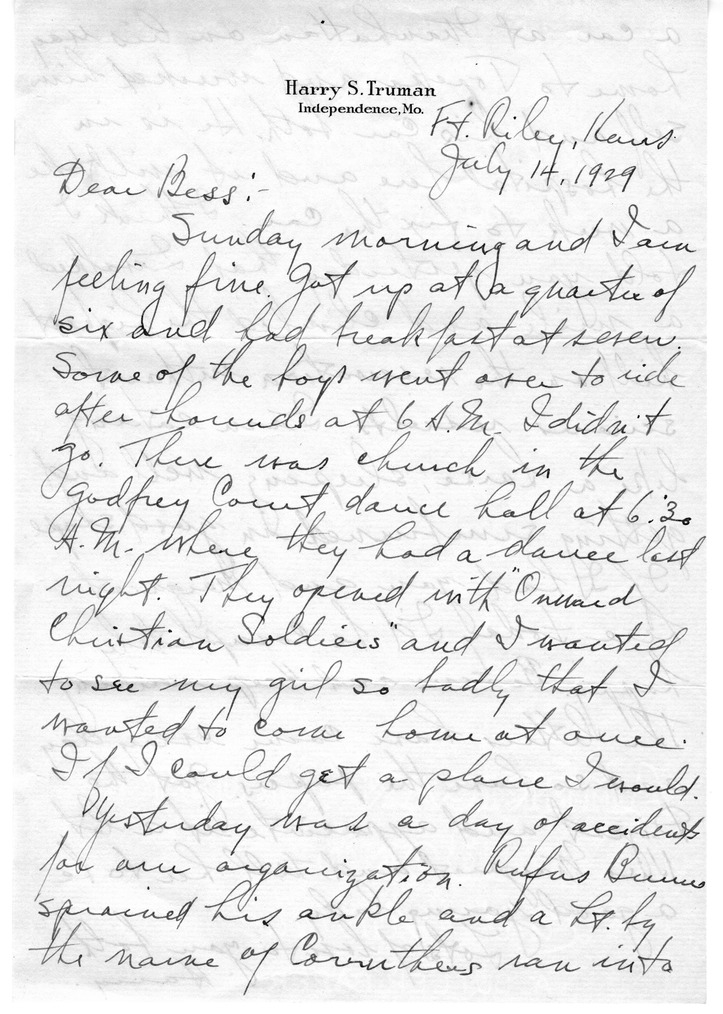 Harry S. Truman
Independence, Mo.
Ft. Riley, Kans.
July 14, 1929
Dear Bess:-
Sunday morning and I am
feeling fine. Got up at a quarter of
six and had breakfast at seven.
Some of the boys went over to ride
after hounds at 6 A.M. I didn't
go. There was church in the
Godfrey Court dance hall at 6:30
A.M. where they had a dance last
night. They opened with "Onward
Christian Soldiers" and I wanted
to see my girl so badly that I
wanted to come home at once.
If I could get a plane I would.
Yesterday was a day of accidents
for our organization. Rufus Burrus
sprained his ankle and a Lt. by
the name of Carruthers ran into